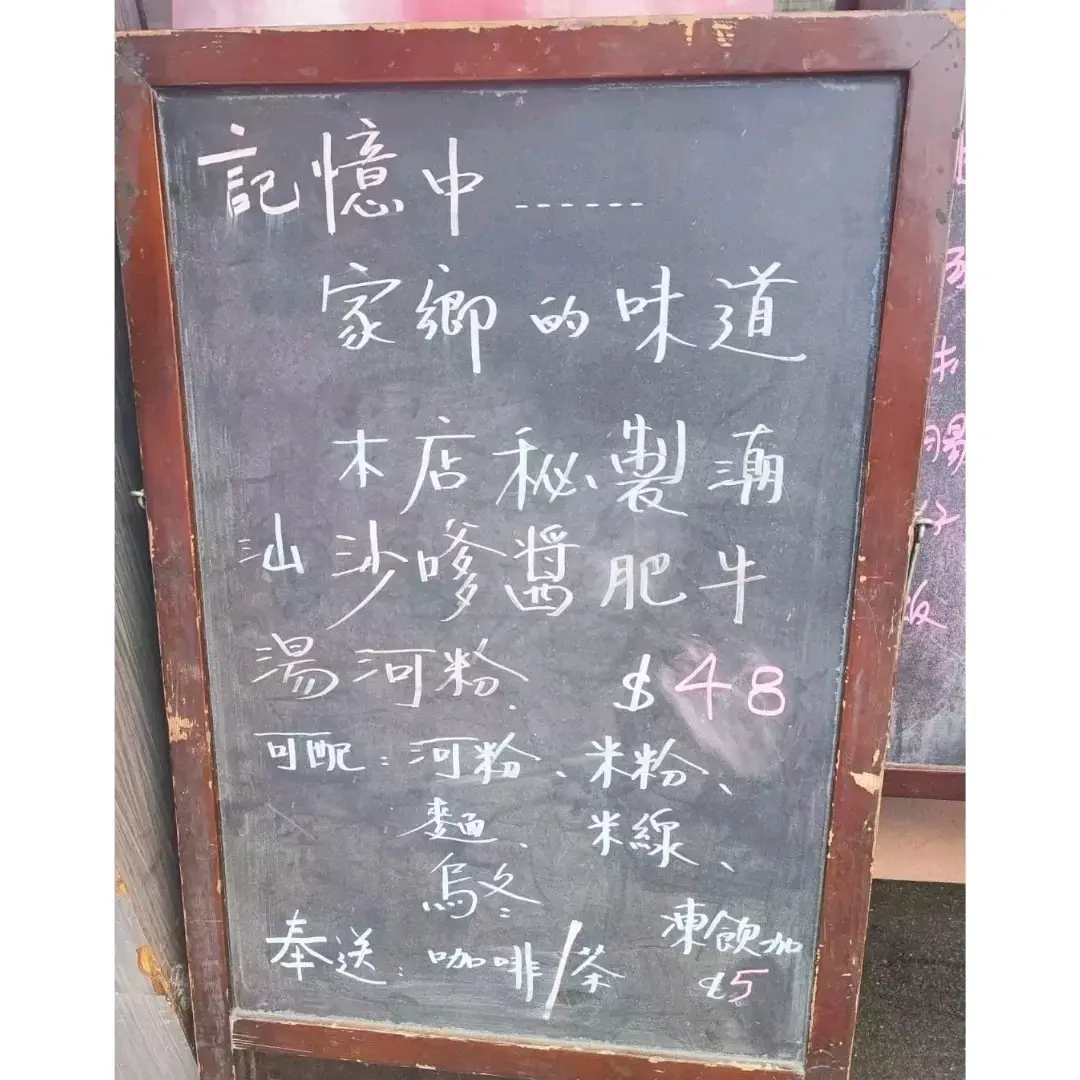 記憶中------
家鄉的味道
本店秘製潮
汕沙嗲醬肥牛
湯河粉. $48
可配:河粉、米粉、
麵、米線、
烏冬
奉送:咖啡/茶
凍飲加
$5